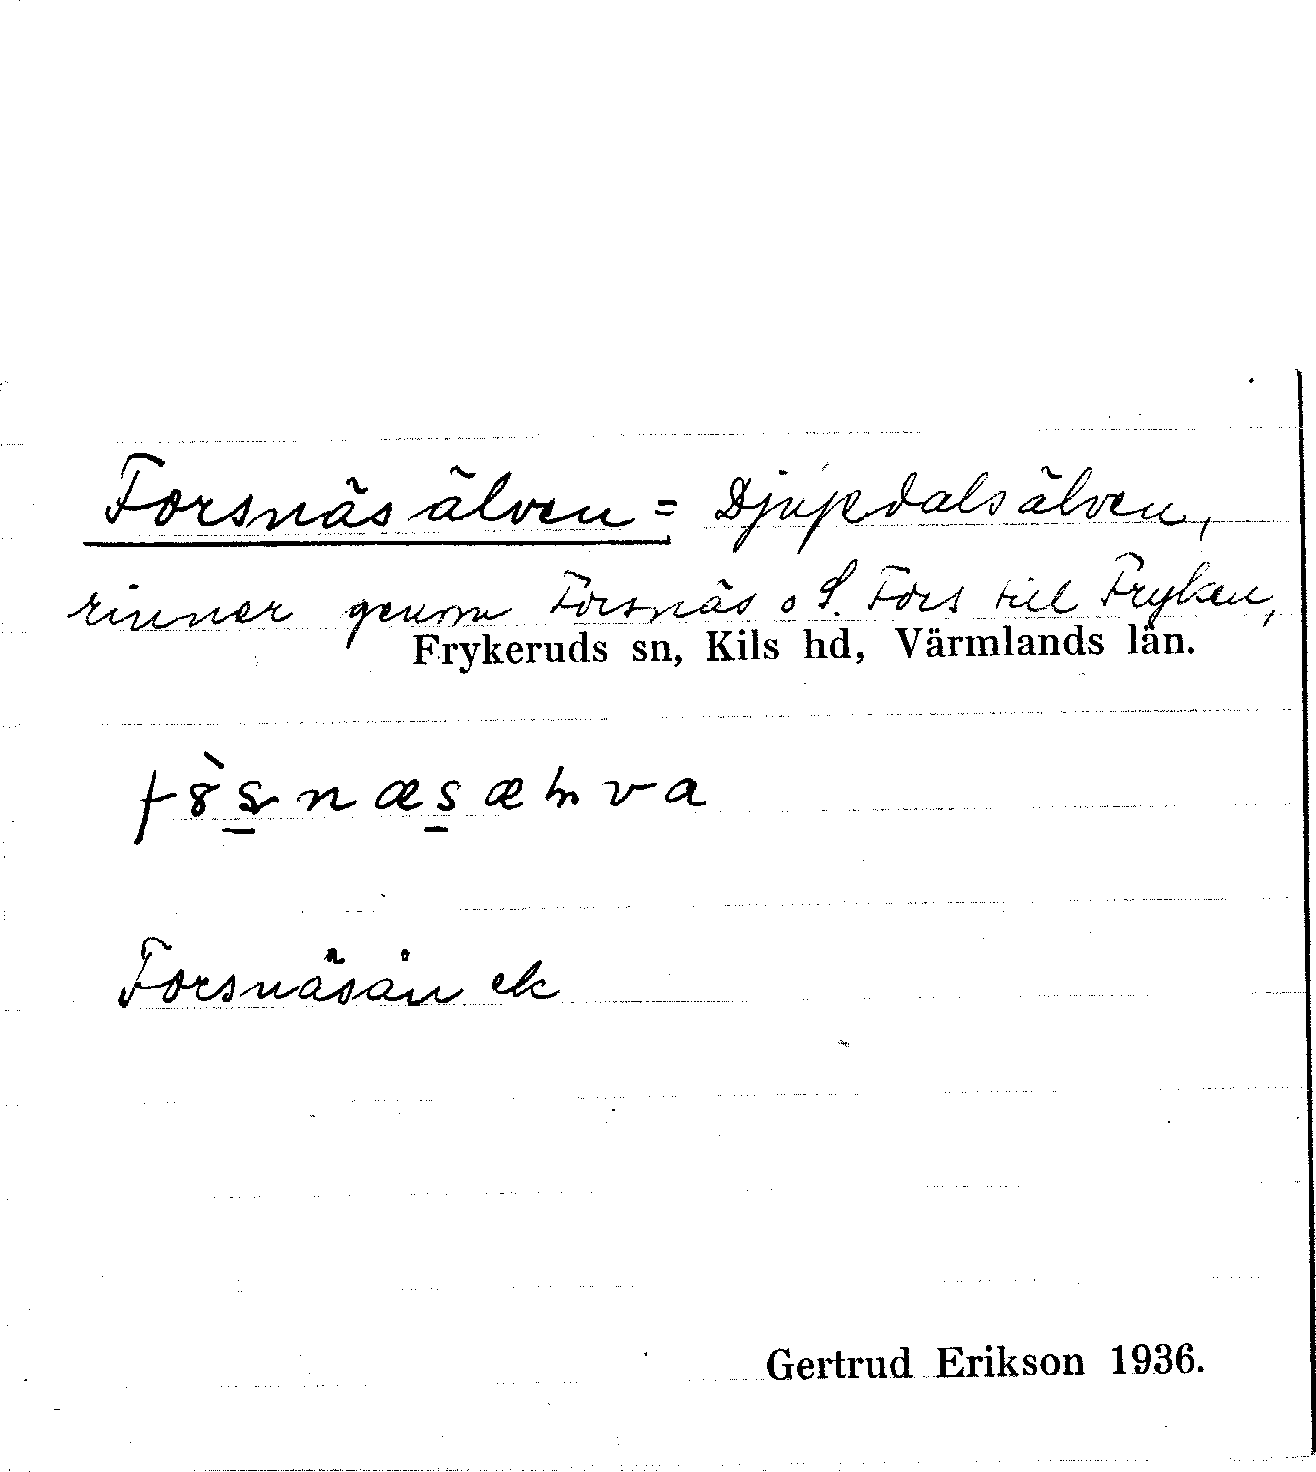 Forsnäsälven = Djupdalsälven,
rinner genom Forsnäs o S. Fors till Fryken,
Frykeruds sn, Kils hd, Värmlands län.
Forsnäsån ek
Gertrud Erikson 1936.